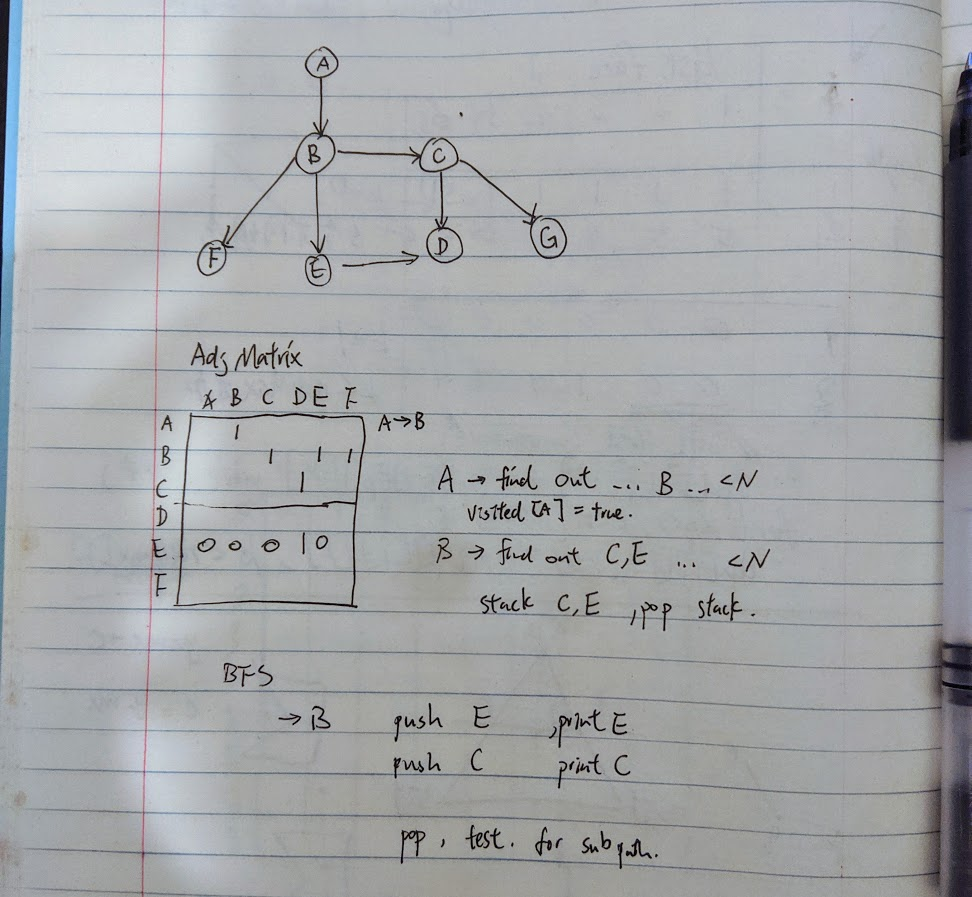 A
B C
F E D G
Adj Matrix
A B C D E F
A 1 A→B
B 1 1 1
C 1
D
E 0 0 0 1 0
F
A → find out ... B ... <N
visited [A] = true.
B → find out C,E ... <N
stack C,E , pop stack.
BFS
→ B push E , print E
push C print C
pop , test. for subpath.